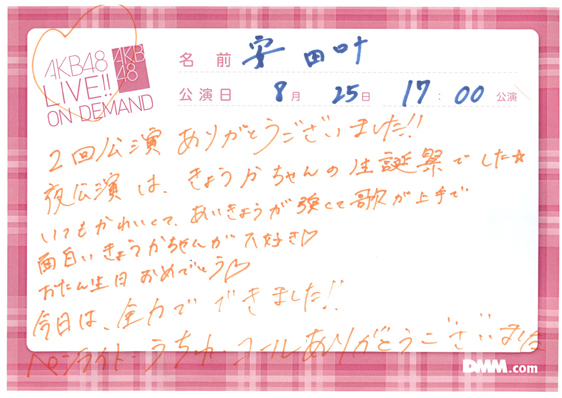 AKB48
LIVE!!
ON DEMAND
AKB
48
名前 安田叶
公演日 8月 25日 17:00 公演
2回公演 ありがとうございました!!
夜公演は、きょうかちゃんの生誕祭でした☆
いつもかわいくて、あいきょうが強くて歌が上手で
面白いきょうかちゃんが大好き♡
おたん生日おめでとう♡
今日は、全力でできました!!
ペンライト・うちわ・コールありがとうございました
DMM.com